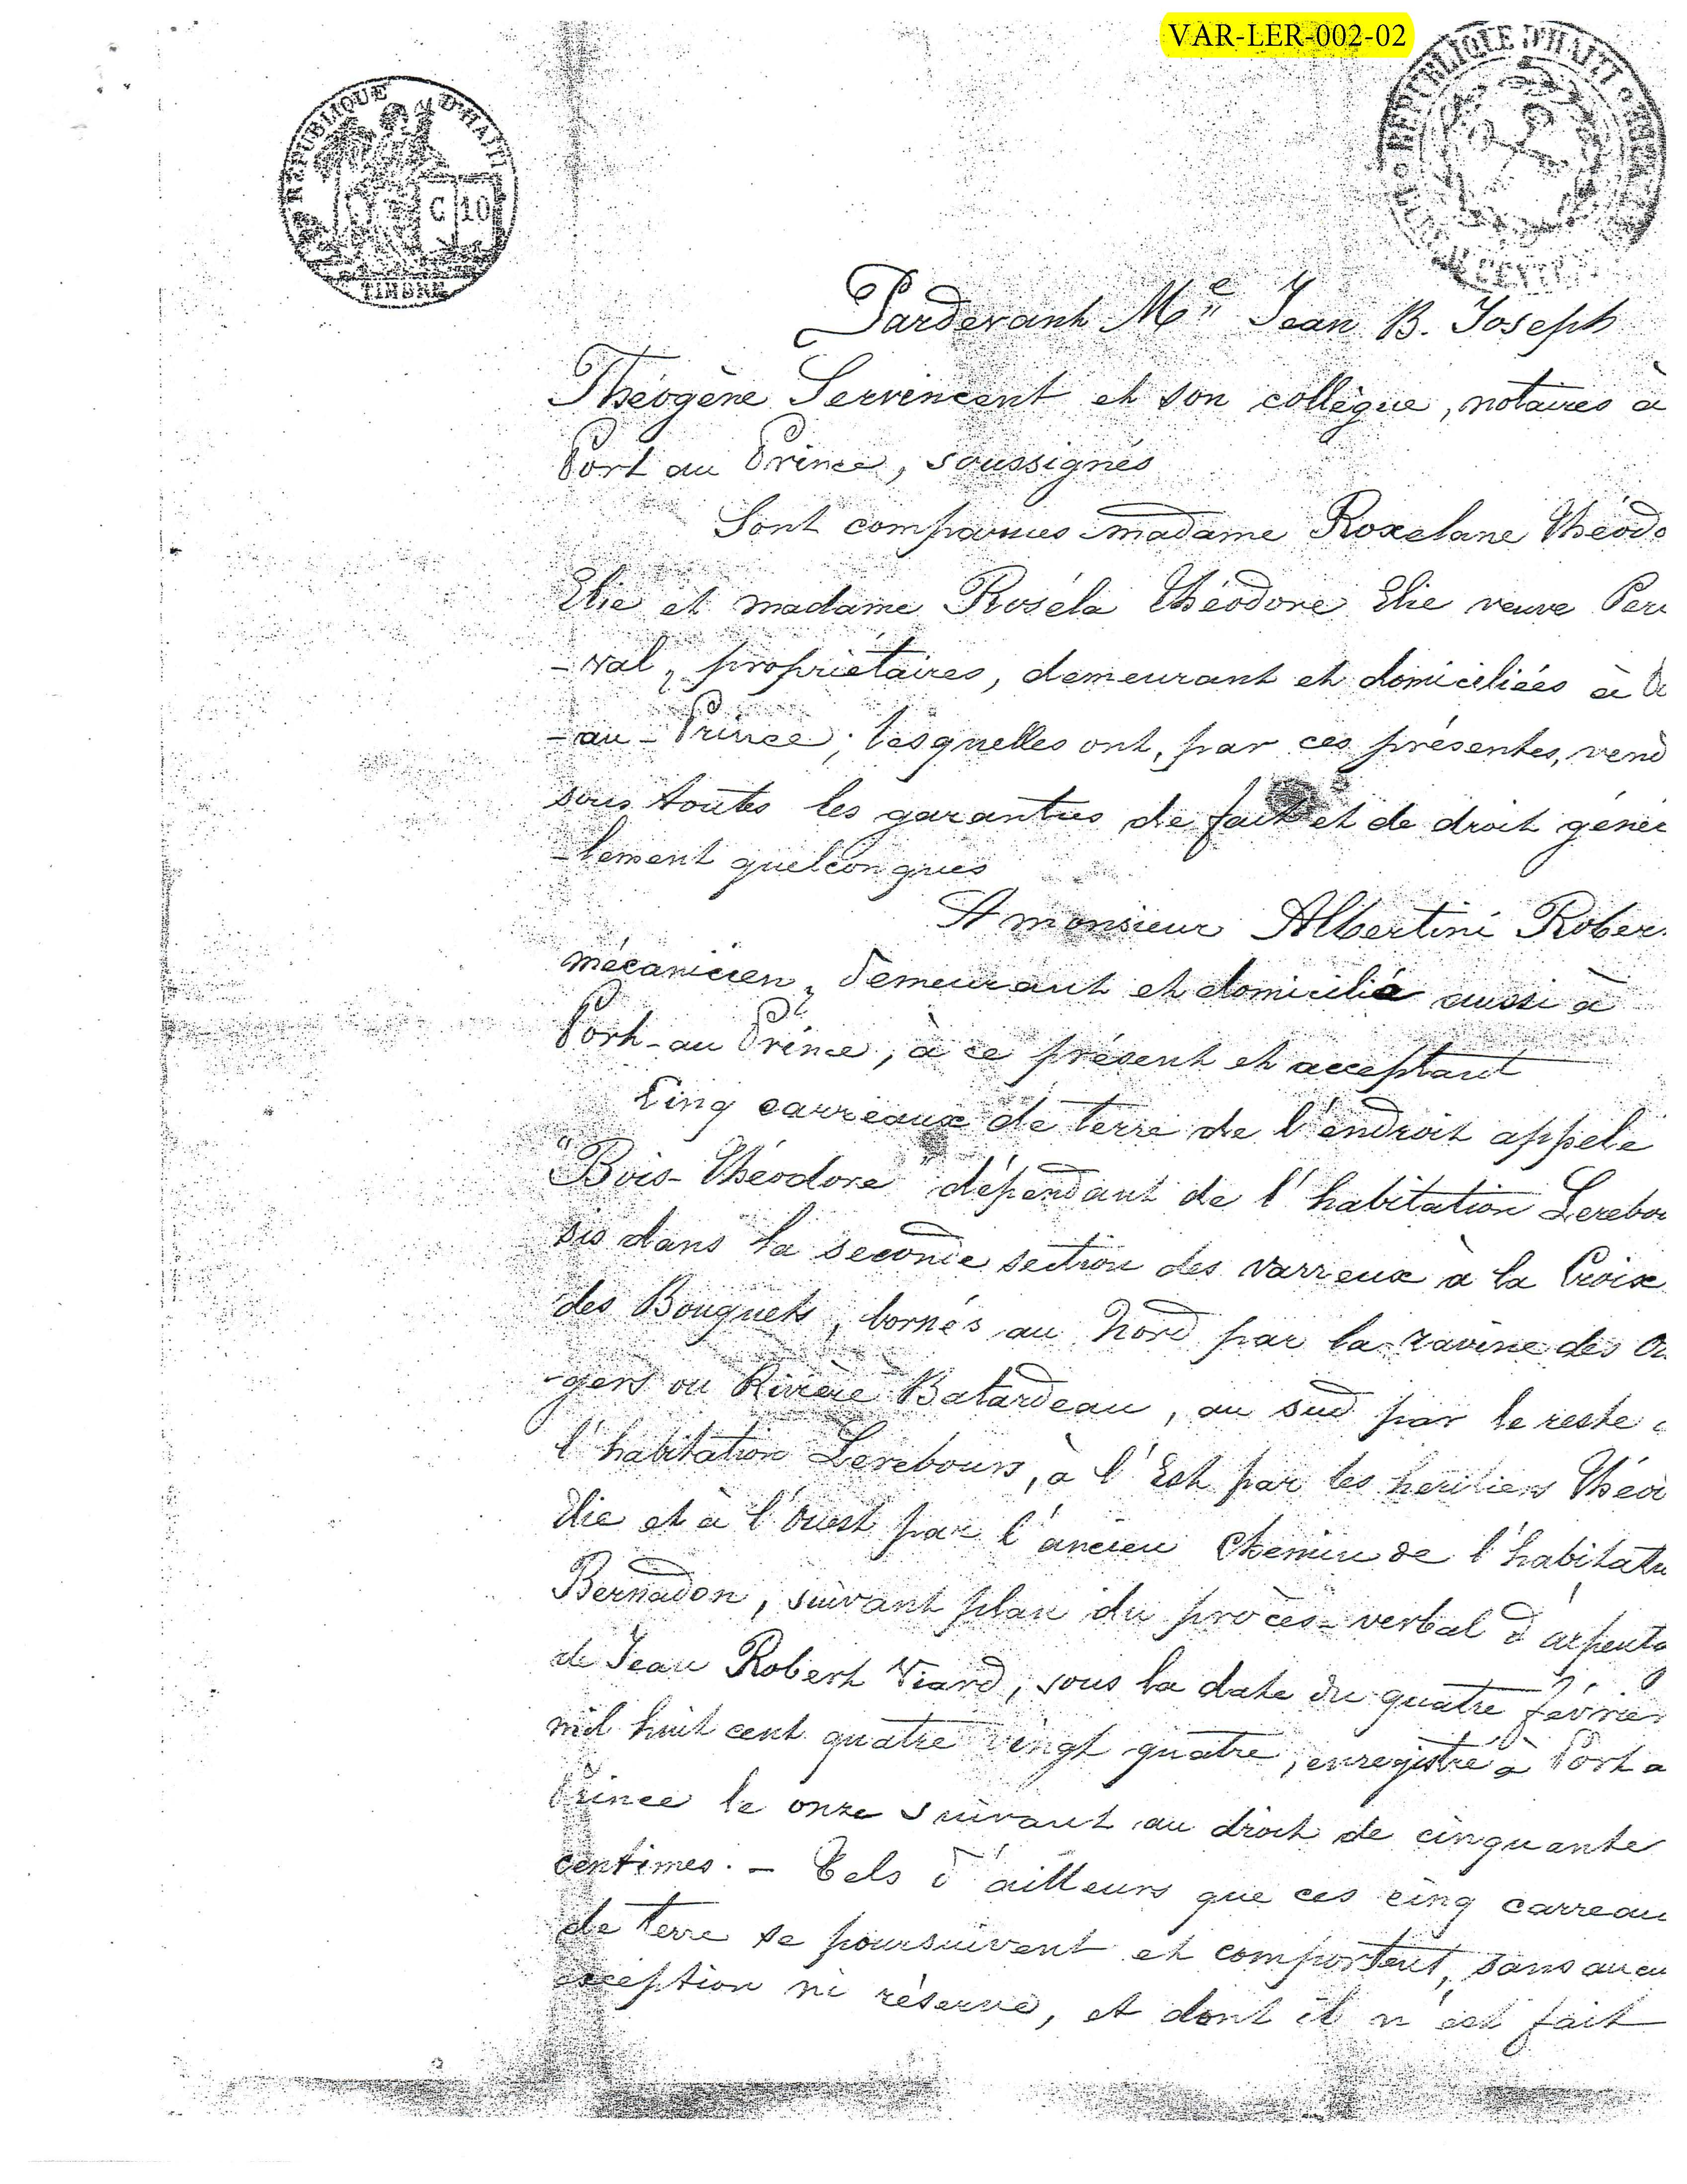 VAR-LER-002-02
REPUBLIQUE D'HAITI
C 10
TIMBRE
REPUBLIQUE D'HAITI
Pardevant Me Jean B. Joseph
Théogène Servincent et son collègue, notaires à
Port au Prince, soussignés
Sont comparues madame Roxelane Théodo
Elie et madame Roséla Théodore Elie veuve Per
-val, propriétaires, demeurant et domiciliées à
-au-Prince; lesquelles ont, par ces présentes, vend
sous toutes les garanties de fait et de droit génér
-lement quelconques
A monsieur Albertini Rober
mécanicien, demeurant et domicilié aussi à
Port-au Prince, à ce présent et acceptant
Cinq carreaux de terre de l'endroit appelé
"Bois-Théodore" dépendant de l'habitation Lerebou
sis dans la seconde section des Varreux à la Croix
des Bouquets, bornés au Nord par la ravine des Or
-gers ou Rivière Batardeau, au sud par le reste
l'habitation Lerebours, à l'Est par les héritiers Théo
Elie et à l'Ouest par l'ancien chemin de l'habitati
Bernadon, suivant plan du procès-verbal d'arpenta
de Jean Robert Viard, sous la date du quatre février
mil huit cent quatre vingt quatre, enregistré à Port a
Prince le onze suivant au droit de cinquante
centimes. - Tels d'ailleurs que ces cinq carreau
de terre se poursuivent et comportent, sans aucu
exception ni réserve, et dont il n'est fait